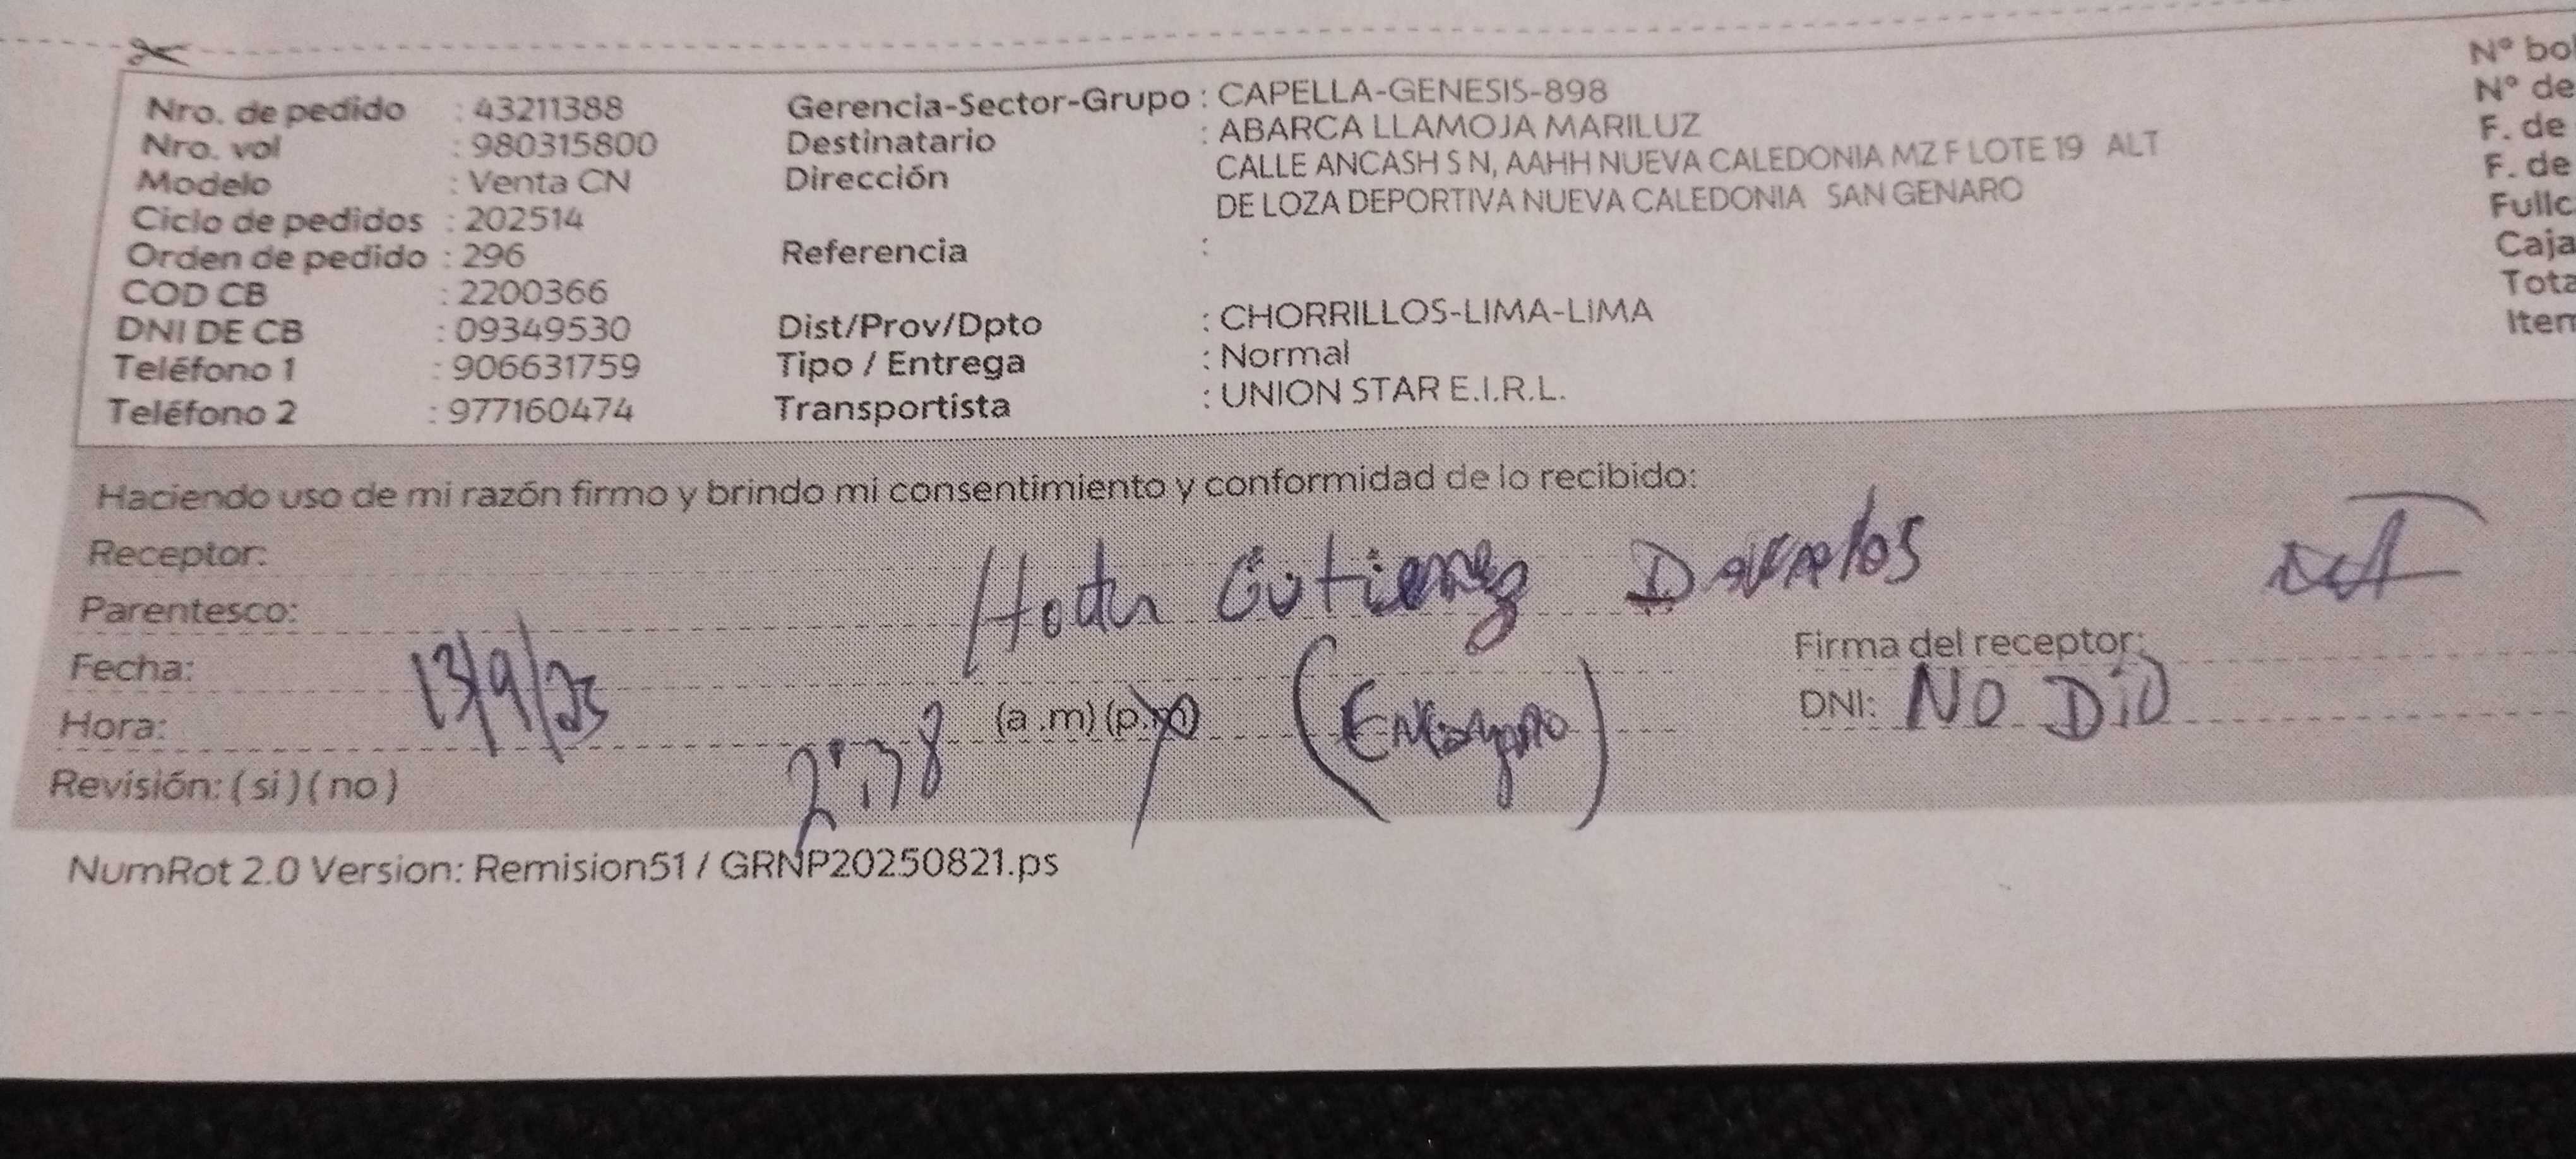 Nro. de pedido : 43211388 Gerencia-Sector-Grupo : CAPELLA-GENESIS-898 N° bol
Nro. vol : 980315800 Destinatario : ABARCA LLAMOJA MARILUZ N° de
Modelo : Venta CN Dirección CALLE ANCASH S N, AAHH NUEVA CALEDONIA MZ F LOTE 19 ALT F. de
Ciclo de pedidos : 202514 DE LOZA DEPORTIVA NUEVA CALEDONIA SAN GENARO F. de
Orden de pedido : 296 Referencia : Fullc
COD CB : 2200366 Caja
DNI DE CB : 09349530 Dist/Prov/Dpto : CHORRILLOS-LIMA-LIMA Tota
Teléfono 1 : 906631759 Tipo / Entrega : Normal Item
Teléfono 2 : 977160474 Transportista : UNION STAR E.I.R.L.
Haciendo uso de mi razón firmo y brindo mi consentimiento y conformidad de lo recibido:
Receptor: Gutierrez
Parentesco:
Fecha: 13/9/25 Firma del receptor:
Hora: (a .m) (p.m) DNI: NO DIO
Revisión: ( si ) ( no )
NumRot 2.0 Version: Remision51 / GRNP20250821.ps